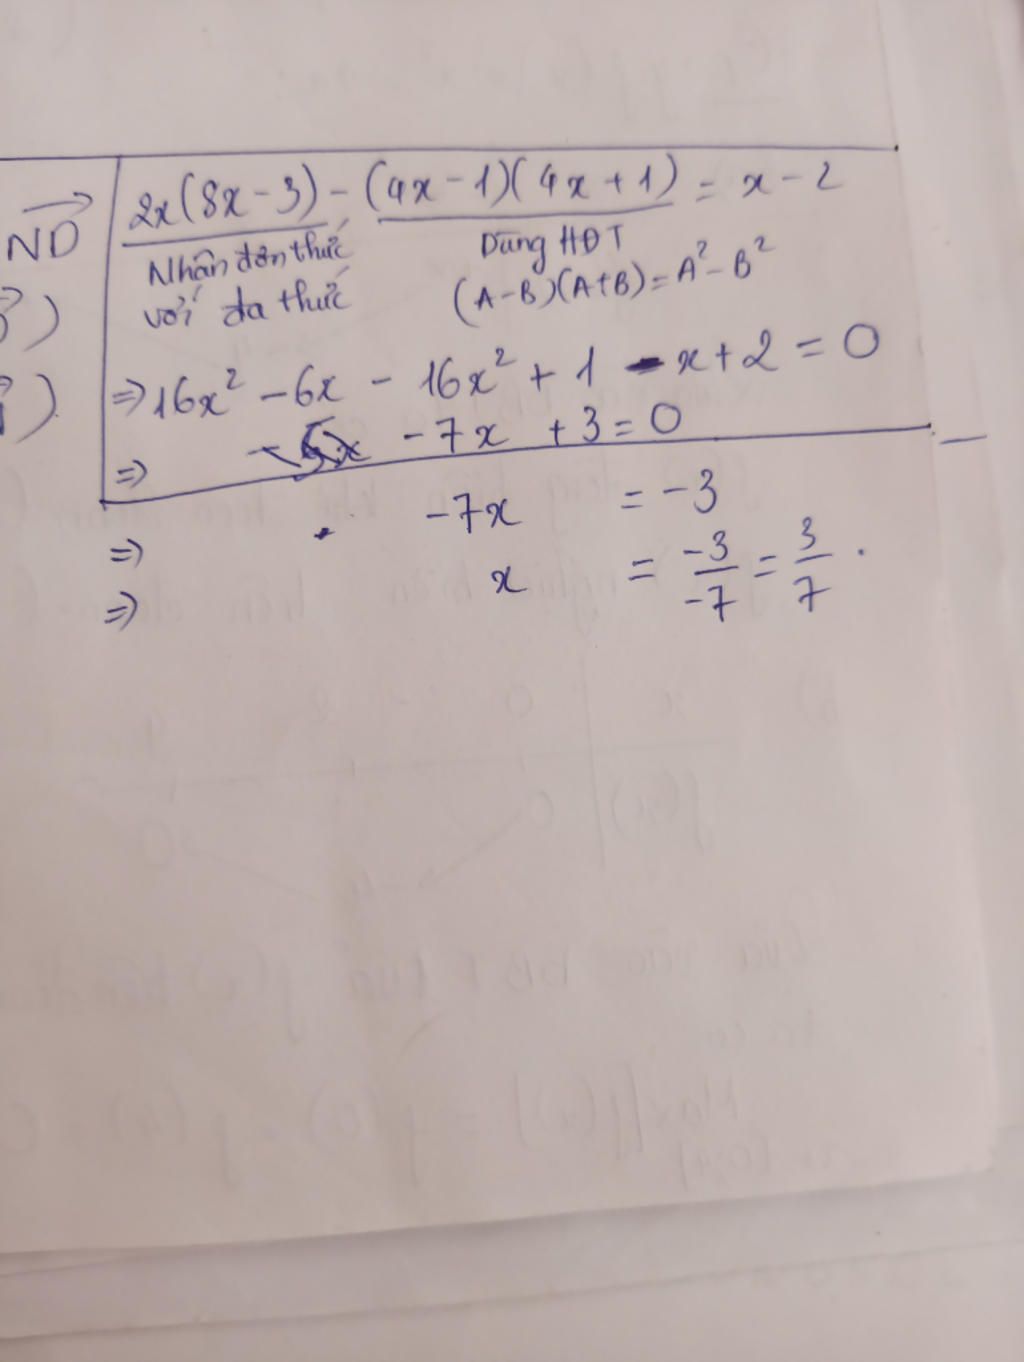 2x(8x - 3) - (4x - 1)(4x + 1) = x - 2
ND
Nhân đơn thức
với đa thức
Dùng HĐT
(A-B)(A+B) = A² - B²
⇒ 16x² - 6x - 16x² + 1 - x + 2 = 0
⇒ - 7x + 3 = 0
⇒ -7x = -3
⇒ x = -3/-7 = 3/7.